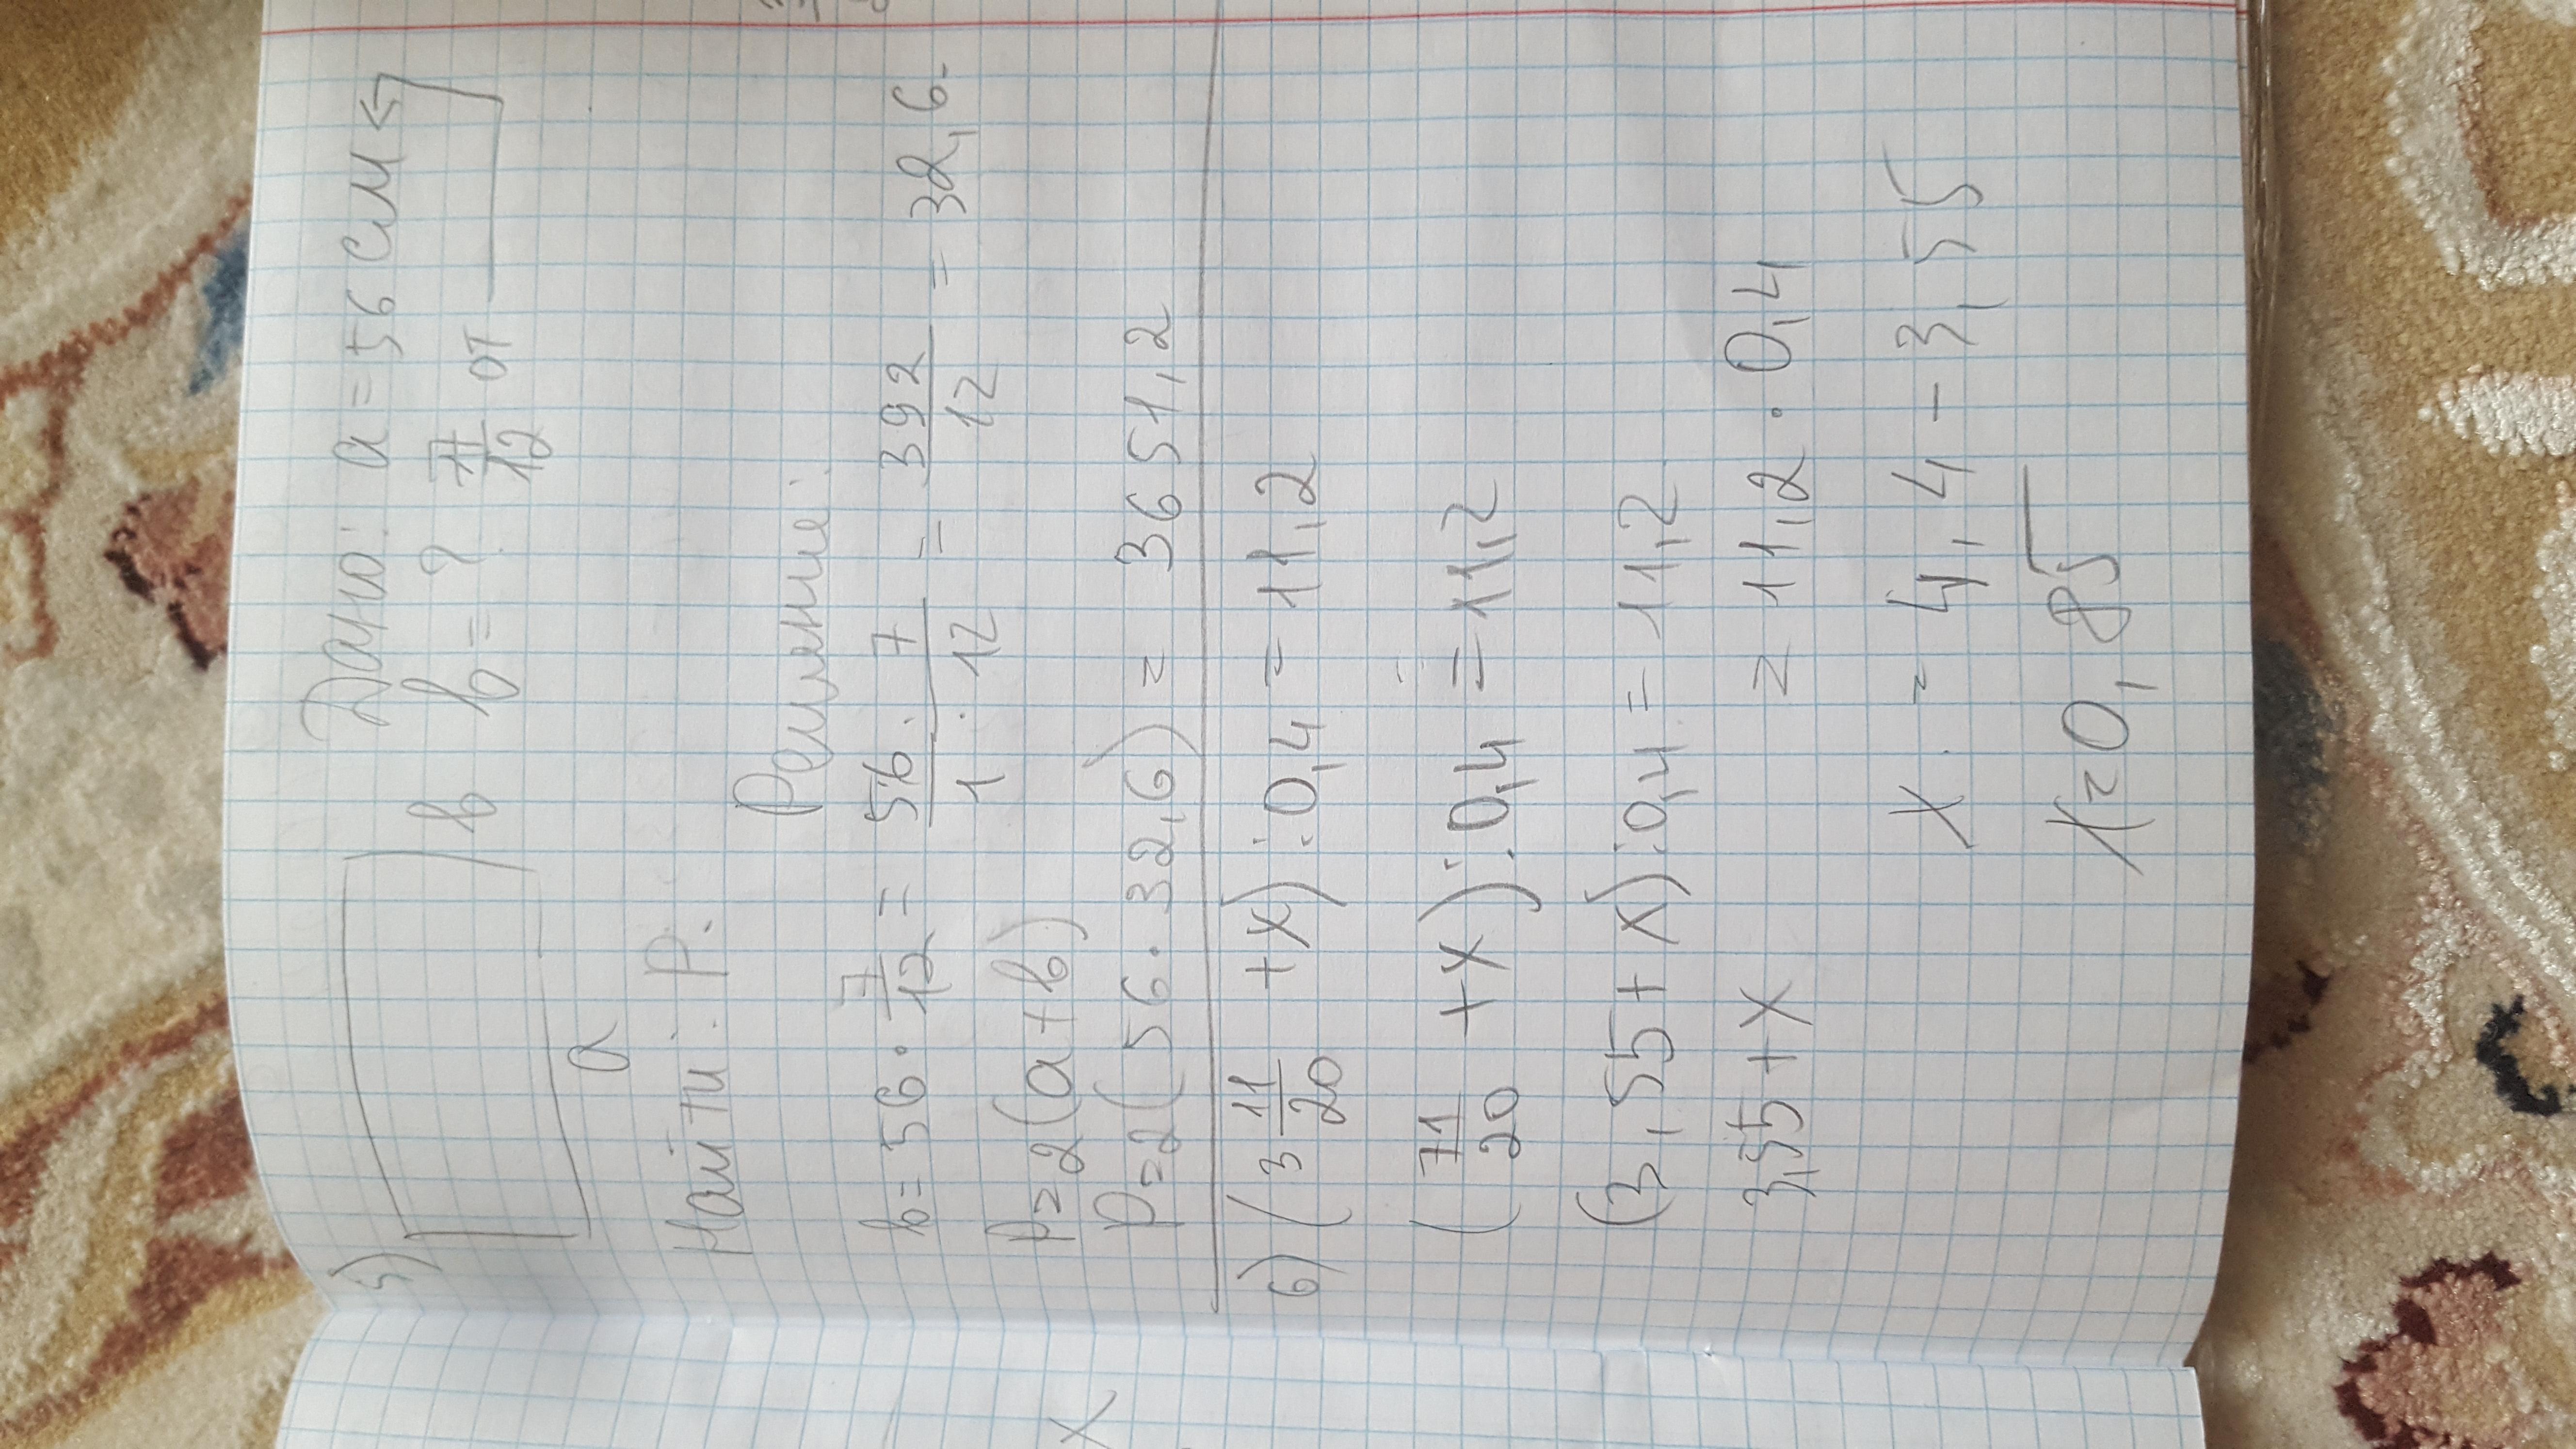 5) b Дано: a = 56 см
b = ? 7/12 от
a
Найти: P.
Решение:
b = 56 · 7/12 = 56 · 7/1 · 12 = 392/12 = 32,6
P = 2(a+b)
P = 2(56 · 32,6) = 3651,2
6) (3 11/20 + x) : 0,4 = 11,2
(71/20 + x) : 0,4 = 11,2
(3,55 + x) : 0,4 = 11,2
3,55 + x = 11,2 · 0,4
x = 4,4 - 3,55
x = 0,85
x